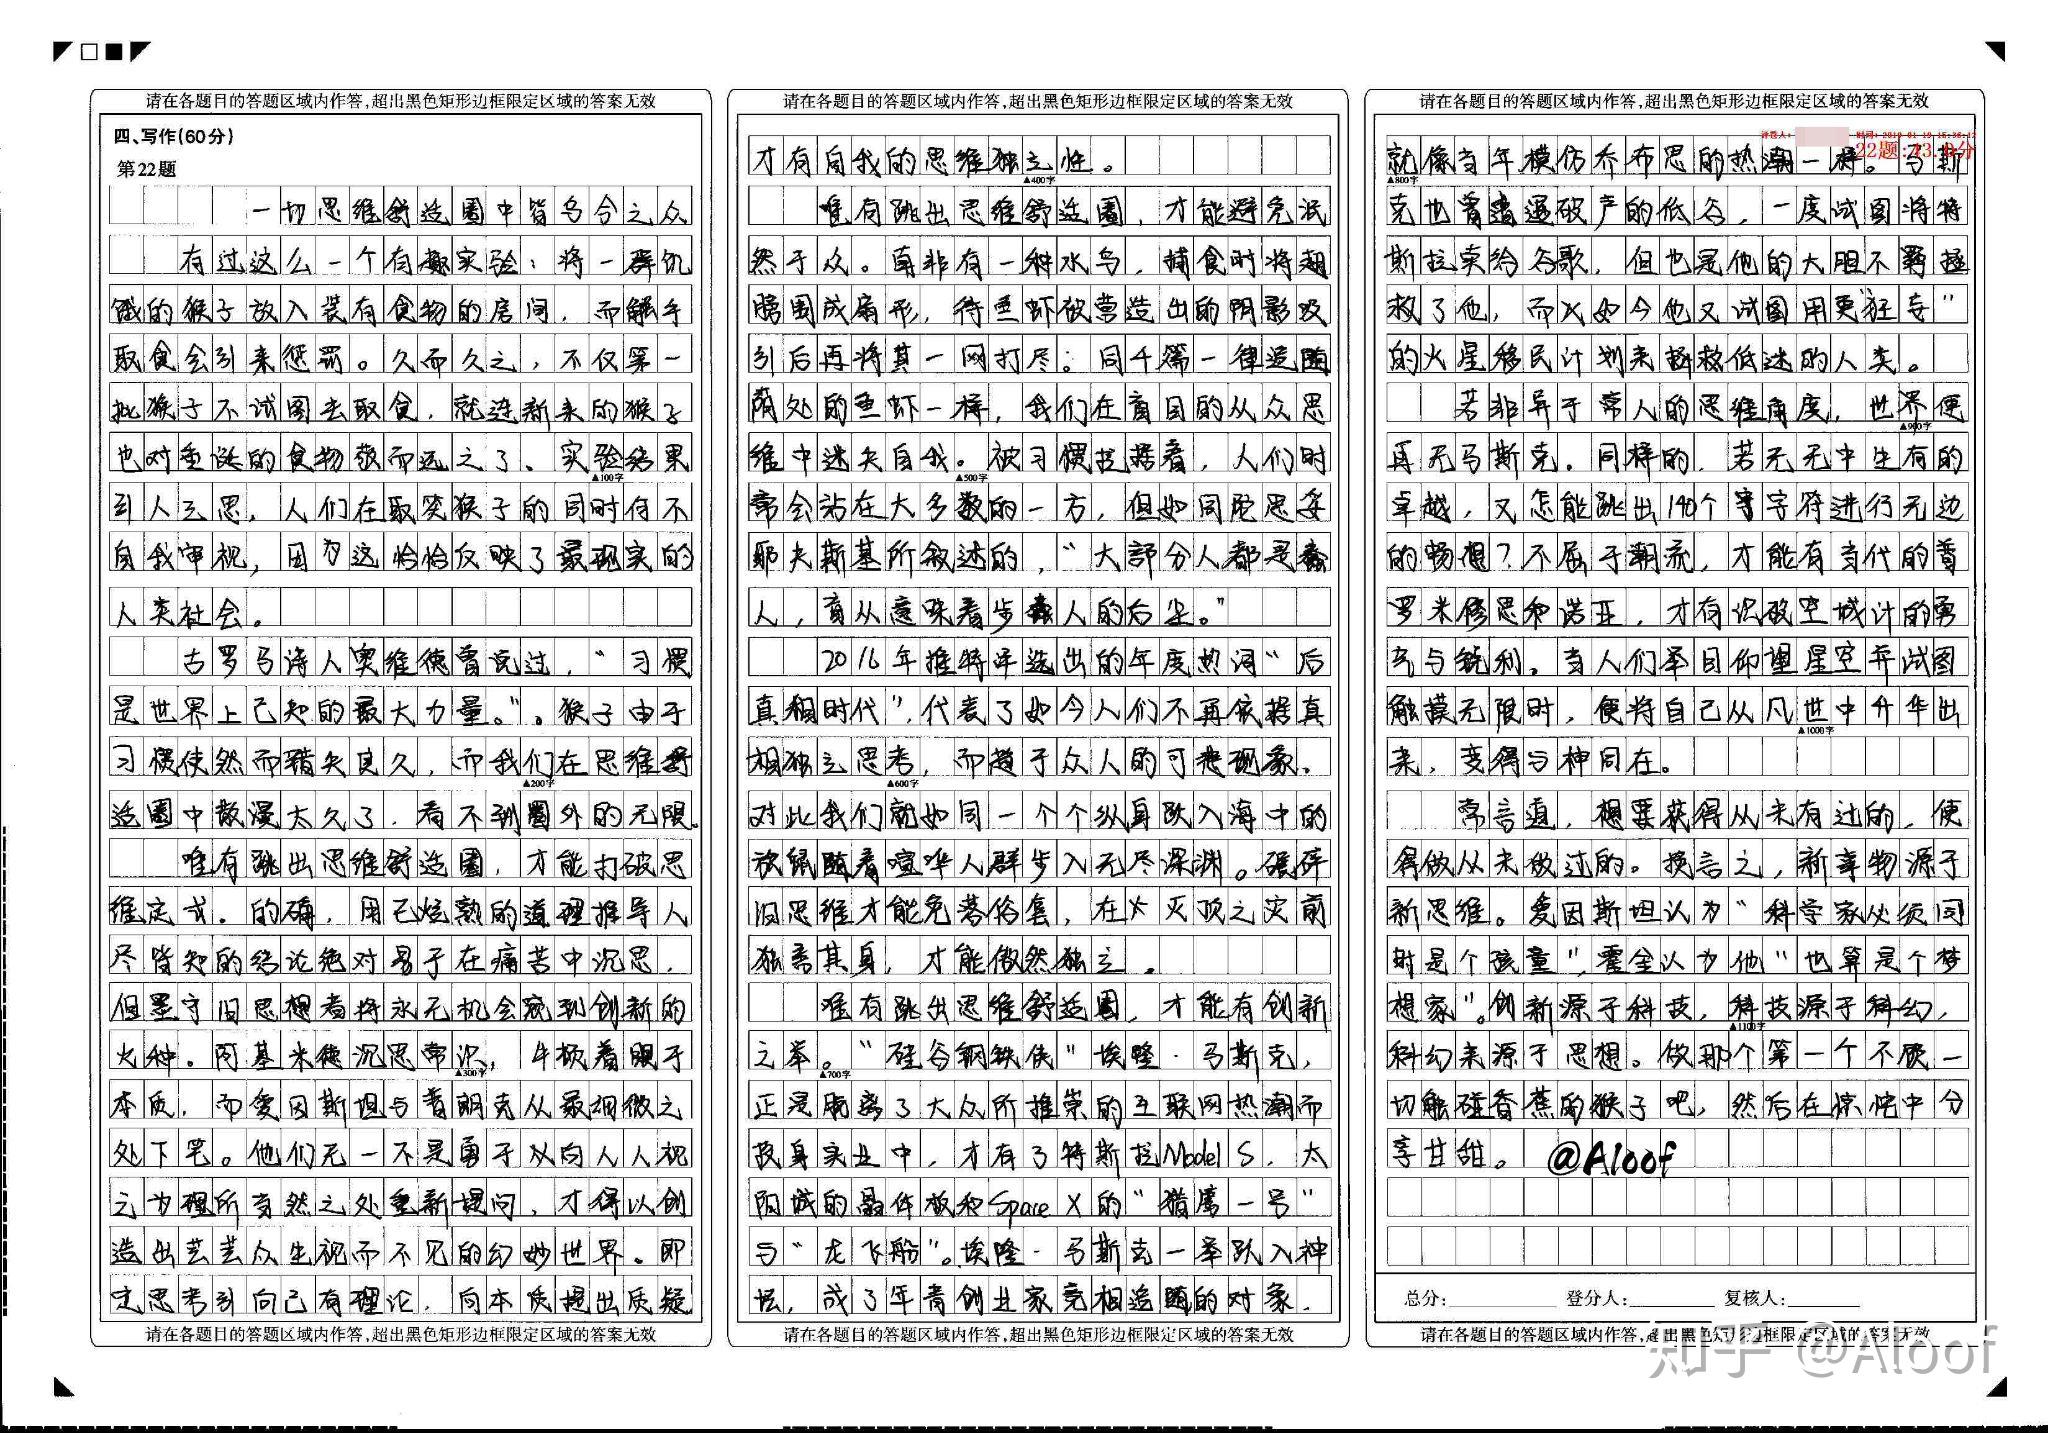 请在各题目的答题区域内作答,超出黑色矩形边框限定区域的答案无效
四、写作(60分)
第22题
一切思维舒适圈中皆乌合之众
有过这么一个有趣实验：将一群饥
饿的猴子放入装有食物的房间，而触手
取食会引来惩罚。久而久之，不仅第一
批猴子不试图去取食，就连新来的猴子
也对垂涎的食物敬而远之了、实验结果
▲100字
引人之思，人们在取笑猴子的同时何不
自我审视，因为这恰恰反映了最现实的
人类社会。
古罗马诗人奥维德曾说过，“习惯
是世界上已知的最大力量。”。猴子由于
习惯使然而错失良久，而我们在思维舒
▲200字
适圈中散漫太久了，看不到圈外的无限。
唯有跳出思维舒适圈，才能打破思
维定式。的确，用已炫熟的道理推导人
尽皆知的结论绝对易于在痛苦中沉思，
但墨守旧思想者将永无机会窥到创新的
火种。阿基米德沉思常识，牛顿着眼于
▲300字
本质，而爱因斯坦与普朗克从最细微之
处下笔。他们无一不是勇于从向人人视
之为理所当然之处重新提问，才得以创
造出芸芸众生视而不见的幻妙世界。即
定思考引向己有理论，向本质提出质疑
请在各题目的答题区域内作答,超出黑色矩形边框限定区域的答案无效
请在各题目的答题区域内作答,超出黑色矩形边框限定区域的答案无效
才有自我的思维独立性。
▲400字
唯有跳出思维舒适圈，才能避免泯
然于众。南非有一种水鸟，捕食时将翅
膀围成扇形，待鱼虾被营造出的阴影吸
引后再将其一网打尽；同千篇一律追随
荫处的鱼虾一样，我们在盲目的从众思
维中迷失自我。被习惯控据着，人们时
▲500字
常会站在大多数的一方，但如同陀思妥
耶夫斯基所叙述的，“大部分人都是蠢
人，盲从意味着步蠢人的后尘。”
2016年推特评选出的年度热词“后
真相时代”，代表了如今人们不再依据真
相独立思考，而趋于众人的可悲现象、
▲600字
对此我们就如同一个个纵身跃入海中的
旅鼠随着喧哗人群步入无尽深渊。砸碎
旧思维才能免落俗套，在灭顶之灾前
独善其身，才能傲然独立。
唯有跳出思维舒适圈，才能有创新
之举。“硅谷钢铁侠”埃隆·马斯克，
▲700字
正是脱离了大众所推崇的互联网热潮而
投身实业中，才有了特斯拉Model S，太
阳城的晶体板和Space X的“猎鹰一号”
与“龙飞船”。埃隆·马斯克一举跃入神
坛，成了年青创业家竞相追随的对象，
请在各题目的答题区域内作答,超出黑色矩形边框限定区域的答案无效
请在各题目的答题区域内作答,超出黑色矩形边框限定区域的答案无效
22题:43.0分
就像当年模仿乔布思的热潮一样。马斯
▲800字
克也曾遭遇破产的低谷，一度试图将特
斯拉卖给谷歌，但也是他的大胆不羁拯
救了他，而如今他又试图用更“狂妄”
的火星移民计划来拯救低迷的人类。
若非异于常人的思维角度，世界便
▲900字
再无马斯克。同样的，若无无中生有的
卓越，又怎能跳出140个字符进行无边
的畅想？不屈于潮流，才能有当代的普
罗米修思和诺亚，才有识破空城计的勇
气与锐利。当人们举目仰望星空并试图
触摸无限时，便将自己从凡世中升华出
▲1000字
来，变得与神同在。
常言道，想要获得从未有过的，便
得做从未做过的。换言之，新事物源于
新思维。爱因斯坦认为“科学家必须同
时是个孩童”，霍金认为他“也算是个梦
想家”。创新源于科技，科技源于科幻，
▲1100字
科幻来源于思想。做那个第一个不顾一
切触碰香蕉的猴子吧，然后在惊诧中分
享甘甜。 @Aloof
总分: 登分人: 复核人:
请在各题目的答题区域内作答,超出黑色矩形边框限定区域的答案无效
知乎 @Aloof